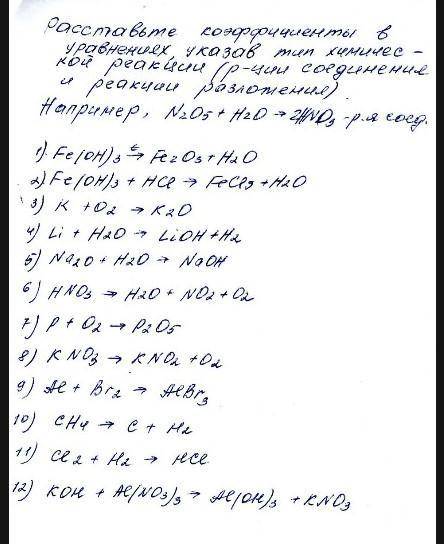 Расставьте коэффициенты в
уравнениях, указав тип химичес-
кой реакции (р-ции соединения
и реакции разложения)
Например, N2O5 + H2O → 2HNO3 -р.я соед.
1) Fe(OH)3 →t Fe2O3 + H2O
2) Fe(OH)3 + HCl → FeCl3 + H2O
3) K + O2 → K2O
4) Li + H2O → LiOH + H2
5) Na2O + H2O → NaOH
6) HNO3 → H2O + NO2 + O2
7) P + O2 → P2O5
8) KNO3 → KNO2 + O2
9) Al + Br2 → AlBr3
10) CH4 → C + H2
11) Cl2 + H2 → HCl
12) KOH + Al(NO3)3 → Al(OH)3 + KNO3